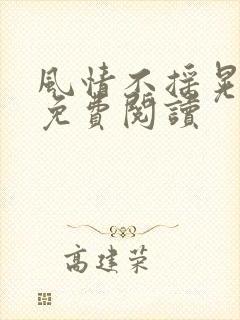 風情不搖晃
免費閱讀
高建荣